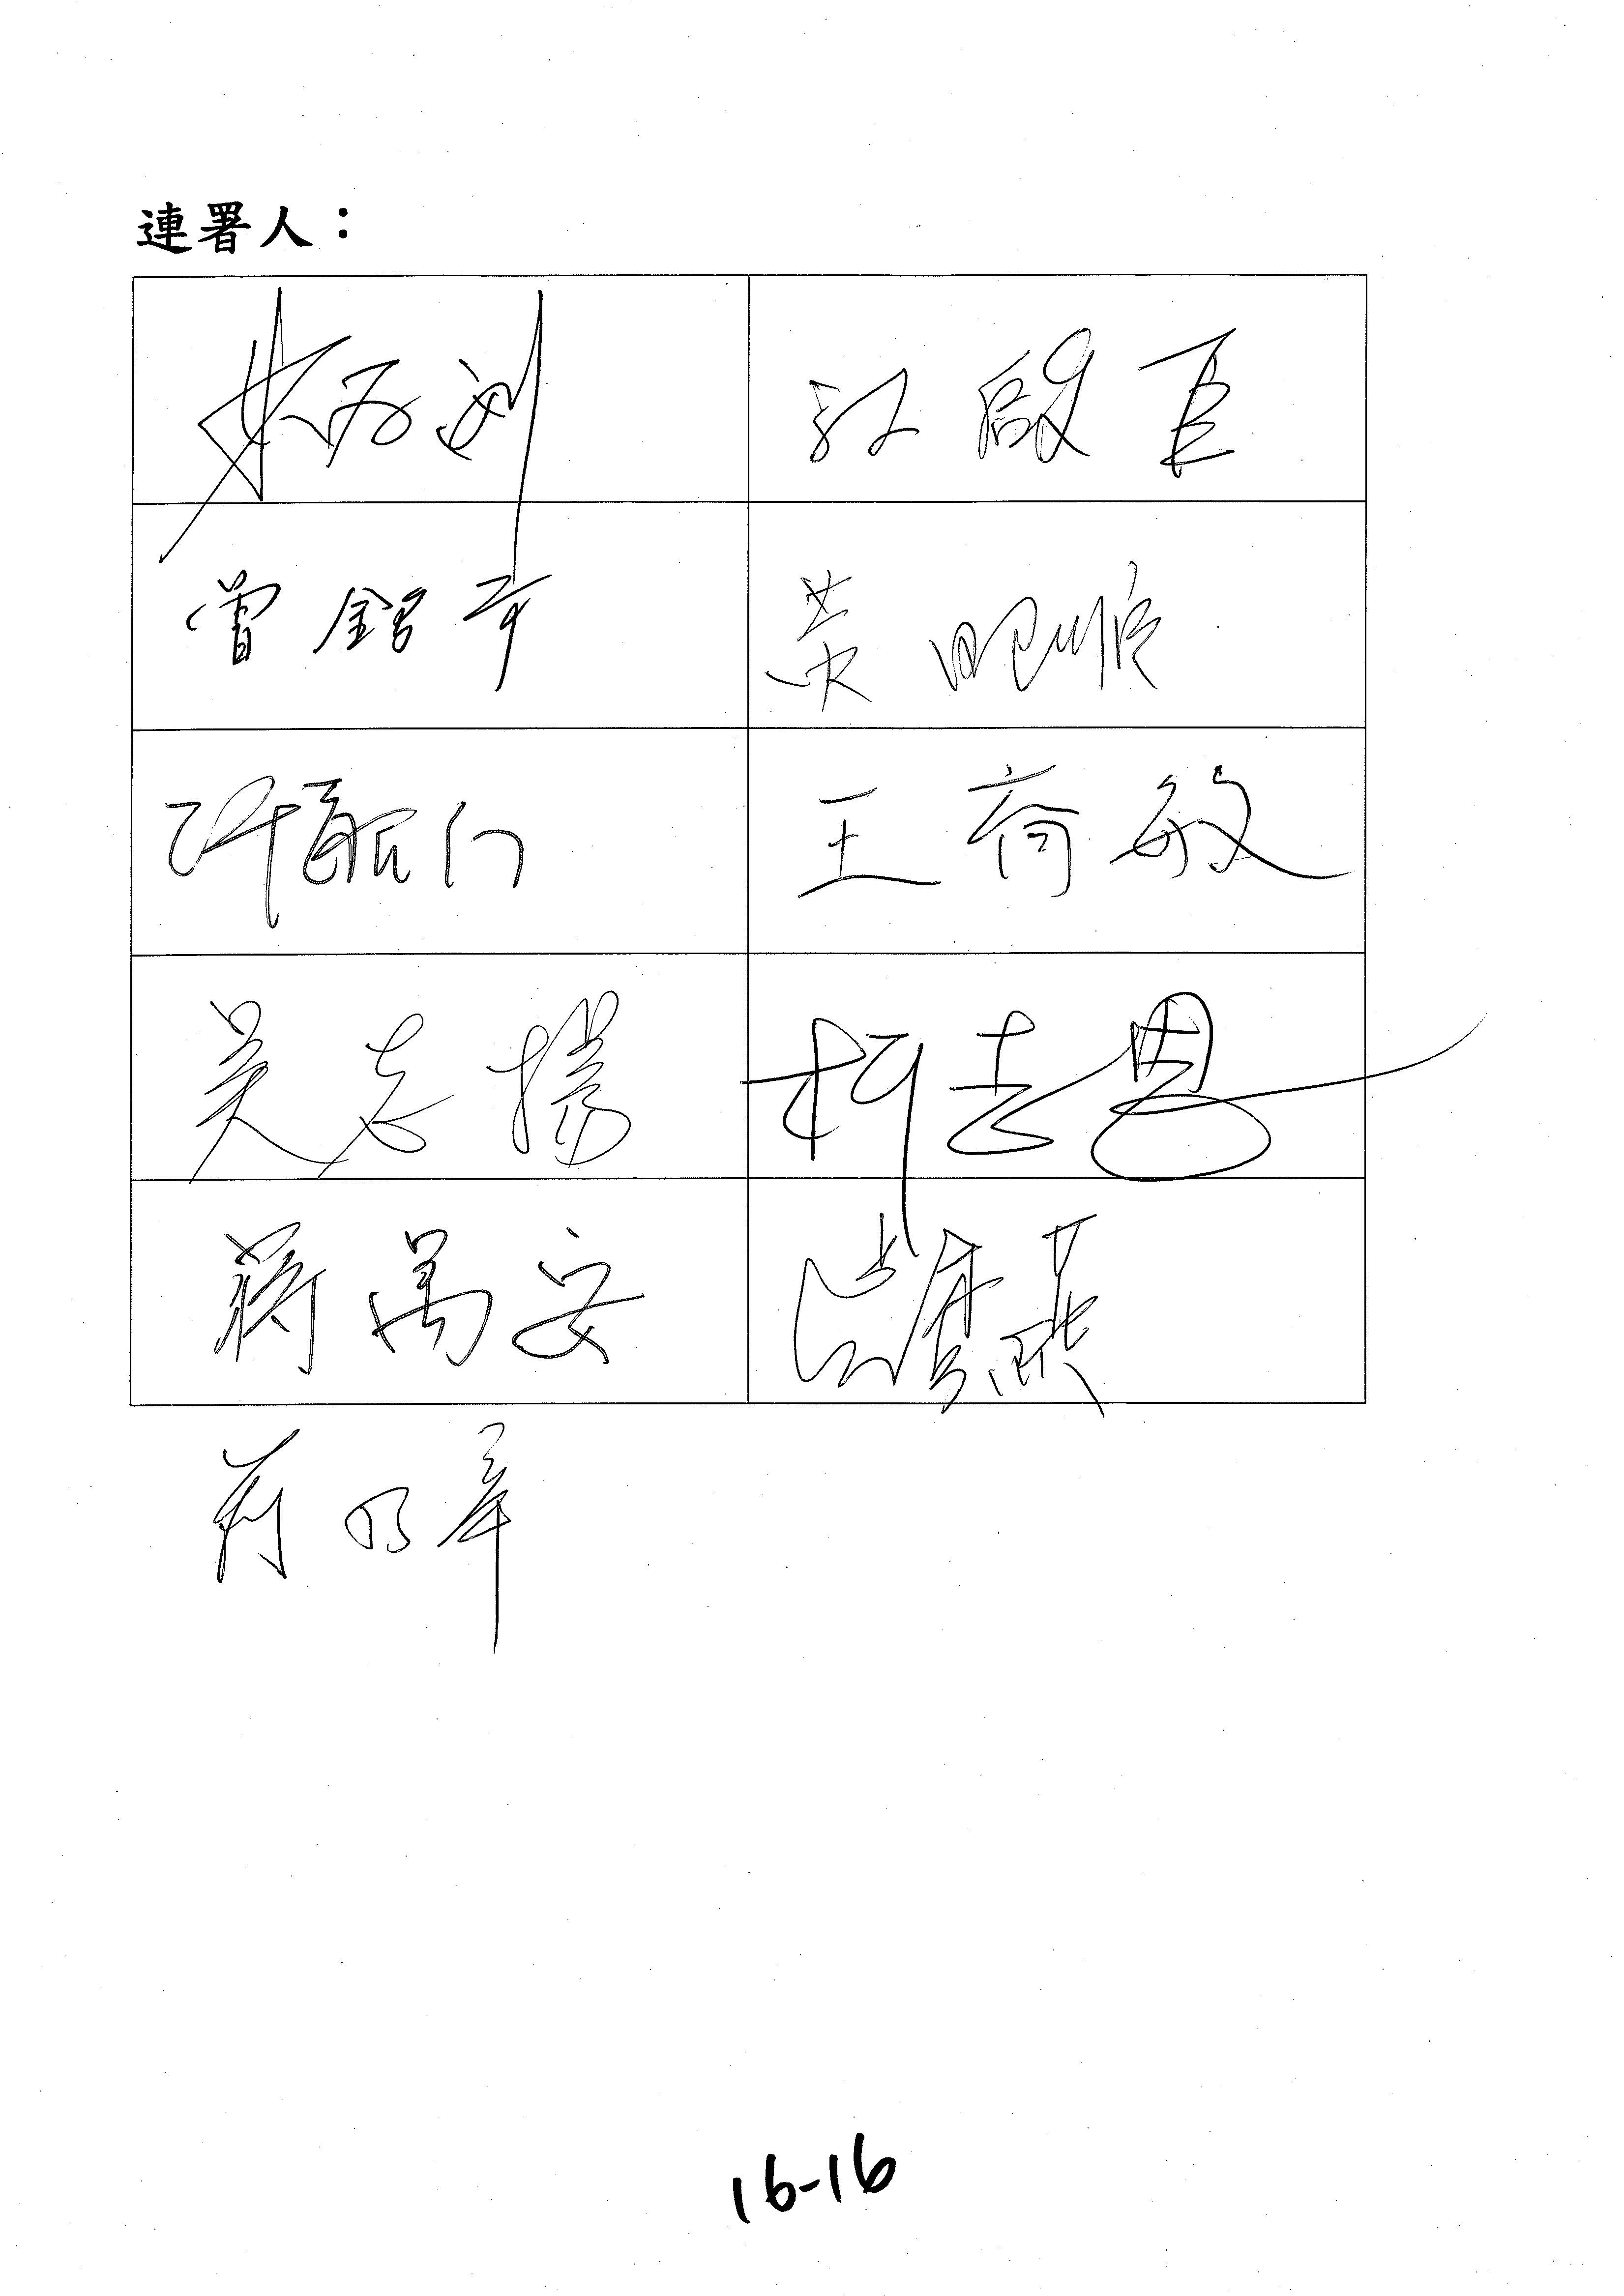 連署人：
江啟臣
曾銘宗 黃昭順
許毓仁 王育敏
吳志揚 柯志恩
蔣萬安
蔣乃辛
16-16